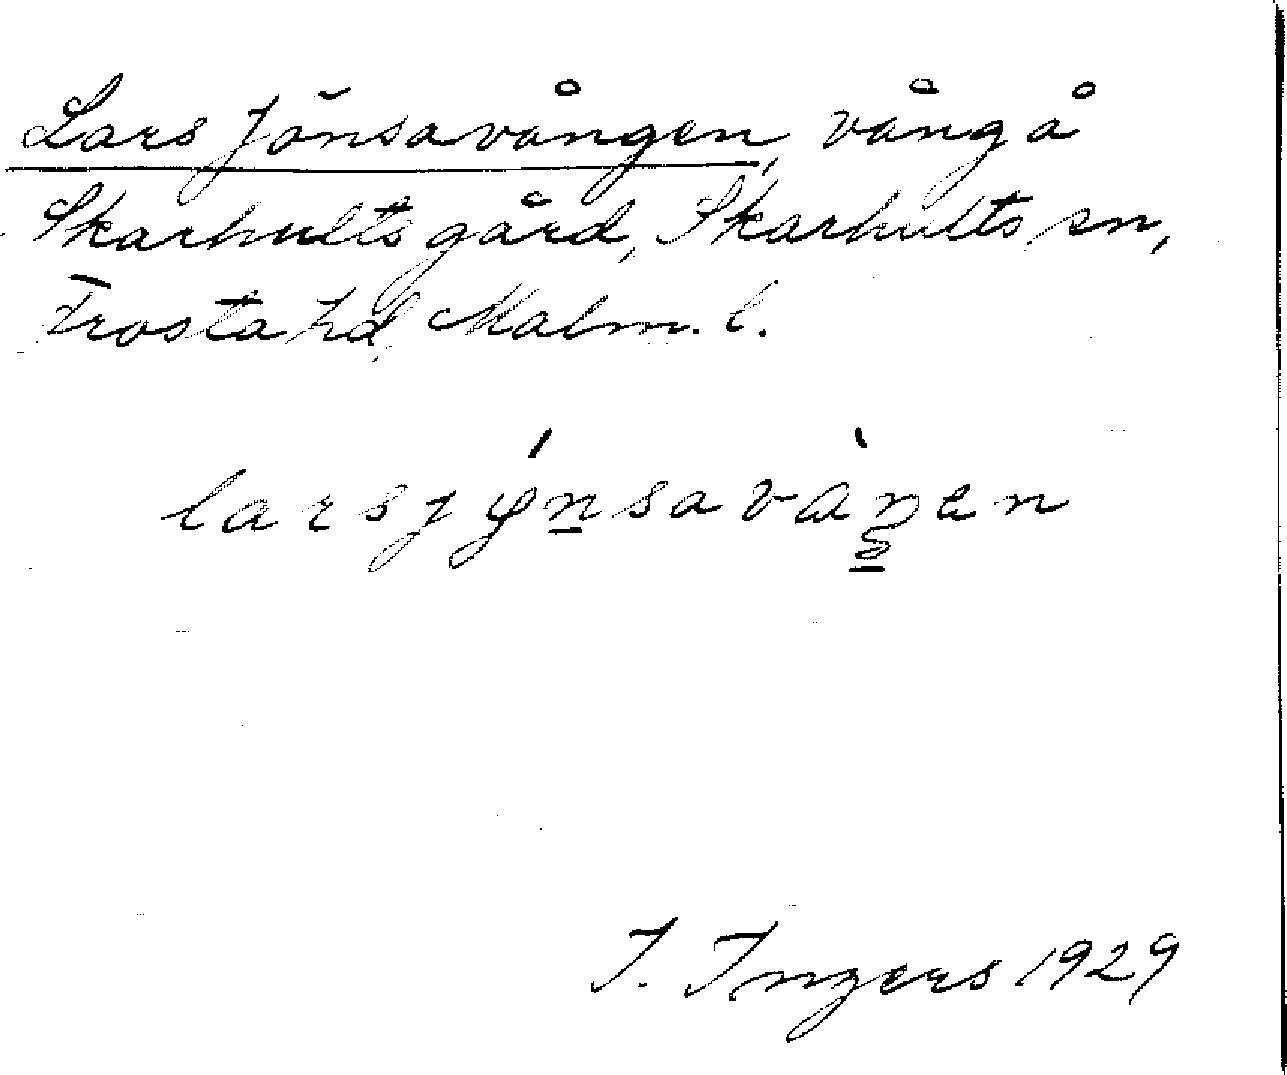 Lars Jönsavången, vång å
Skarhults gård, Skarhults sn,
Frosta hd, Malm. l.
larsjǿnsavàŋen
I. Ingers 1929